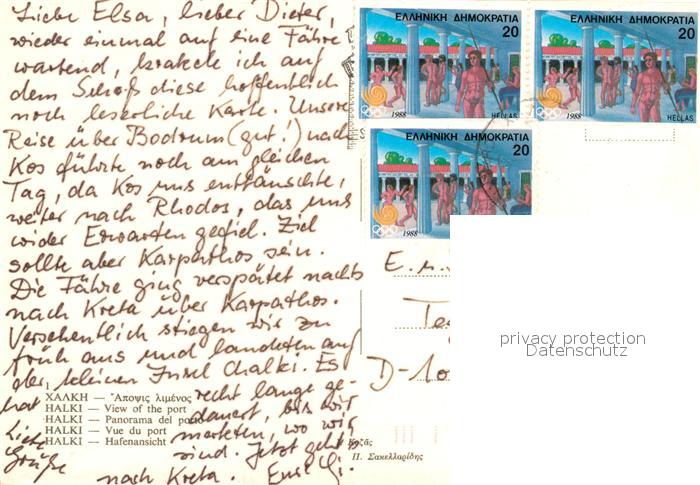 Liebe Elsa, lieber Dieter,
wieder einmal auf eine Fähre
wartend, krakele ich auf
dem Schoß diese hoffentlich
noch leserliche Karte. Unsere
Reise über Bodrum (gut!) nach
Kos führte noch am gleichen
Tag, da Kos uns enttäuschte,
weiter nach Rhodos, das uns
wider Erwarten gefiel. Ziel
sollte aber Karpathos sein.
Die Fähre ging verspätet nachts
nach Kreta über Karpathos.
Versehentlich stiegen wir zu
früh aus und landeten auf
der kleinen Insel Chalki. Es
hat recht lange ge-
dauert, bis wir
merkten, wo wir
sind. Jetzt geht's
nach Kreta.
Liebe
Grüße
ΧΑΛΚΗ — Ἄποψις λιμένος
HALKI — View of the port
HALKI — Panorama del
HALKI — Vue du port
HALKI — Hafenansicht
Π. Σακελλαρίδης
ΕΛΛΗΝΙΚΗ ΔΗΜΟΚΡΑΤΙΑ
20
1988
HELLAS
ΕΛΛΗΝΙΚΗ ΔΗΜΟΚΡΑΤΙΑ
20
1988
HELLAS
ΕΛΛΗΝΙΚΗ ΔΗΜΟΚΡΑΤΙΑ
20
1988
E. u.
Te
D-10
privacy protection
Datenschutz